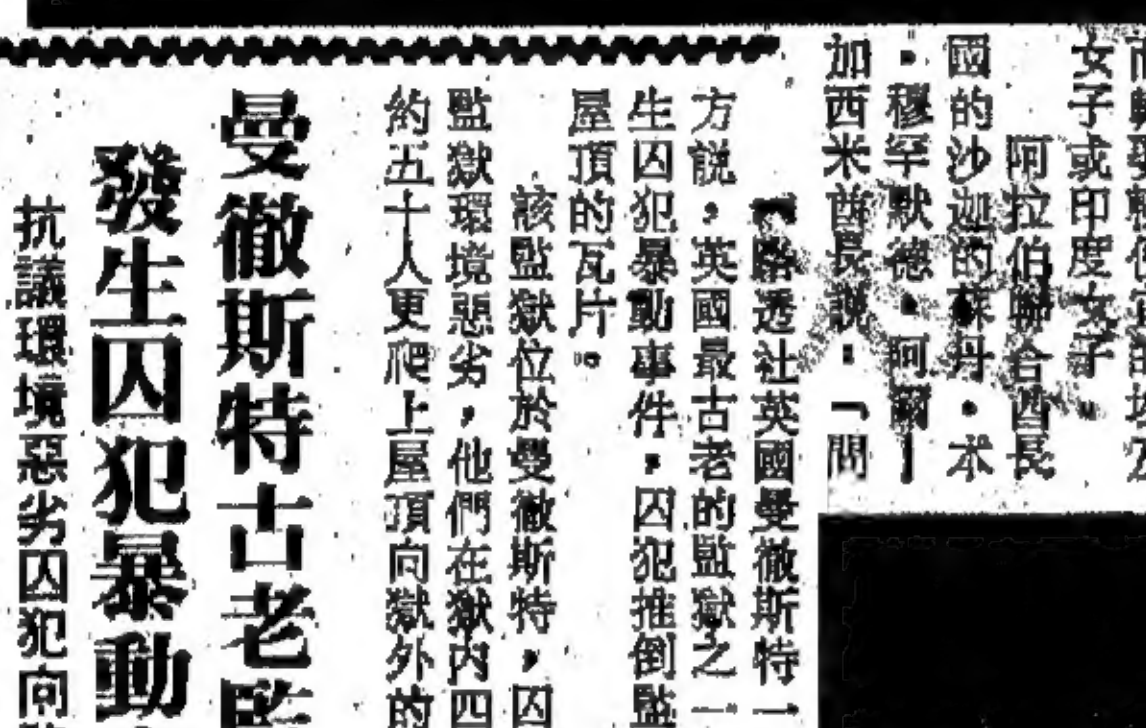 女子或印度女子。
阿拉伯聯合酋長
國的沙迦的蘇丹•
•穆罕默德•阿爾|
加西米酋長說:「問
路透社英國曼徹斯特一
方説,英國最古老的監獄之一
生囚犯暴動事件,囚犯推倒監
屋頂的瓦片。
該監獄位於曼徹斯特,囚
監獄環境惡劣,他們在獄內四
約五十人更爬上屋頂向獄外的
曼徹斯特古老監
發生囚犯暴動
抗議環境惡劣囚犯向